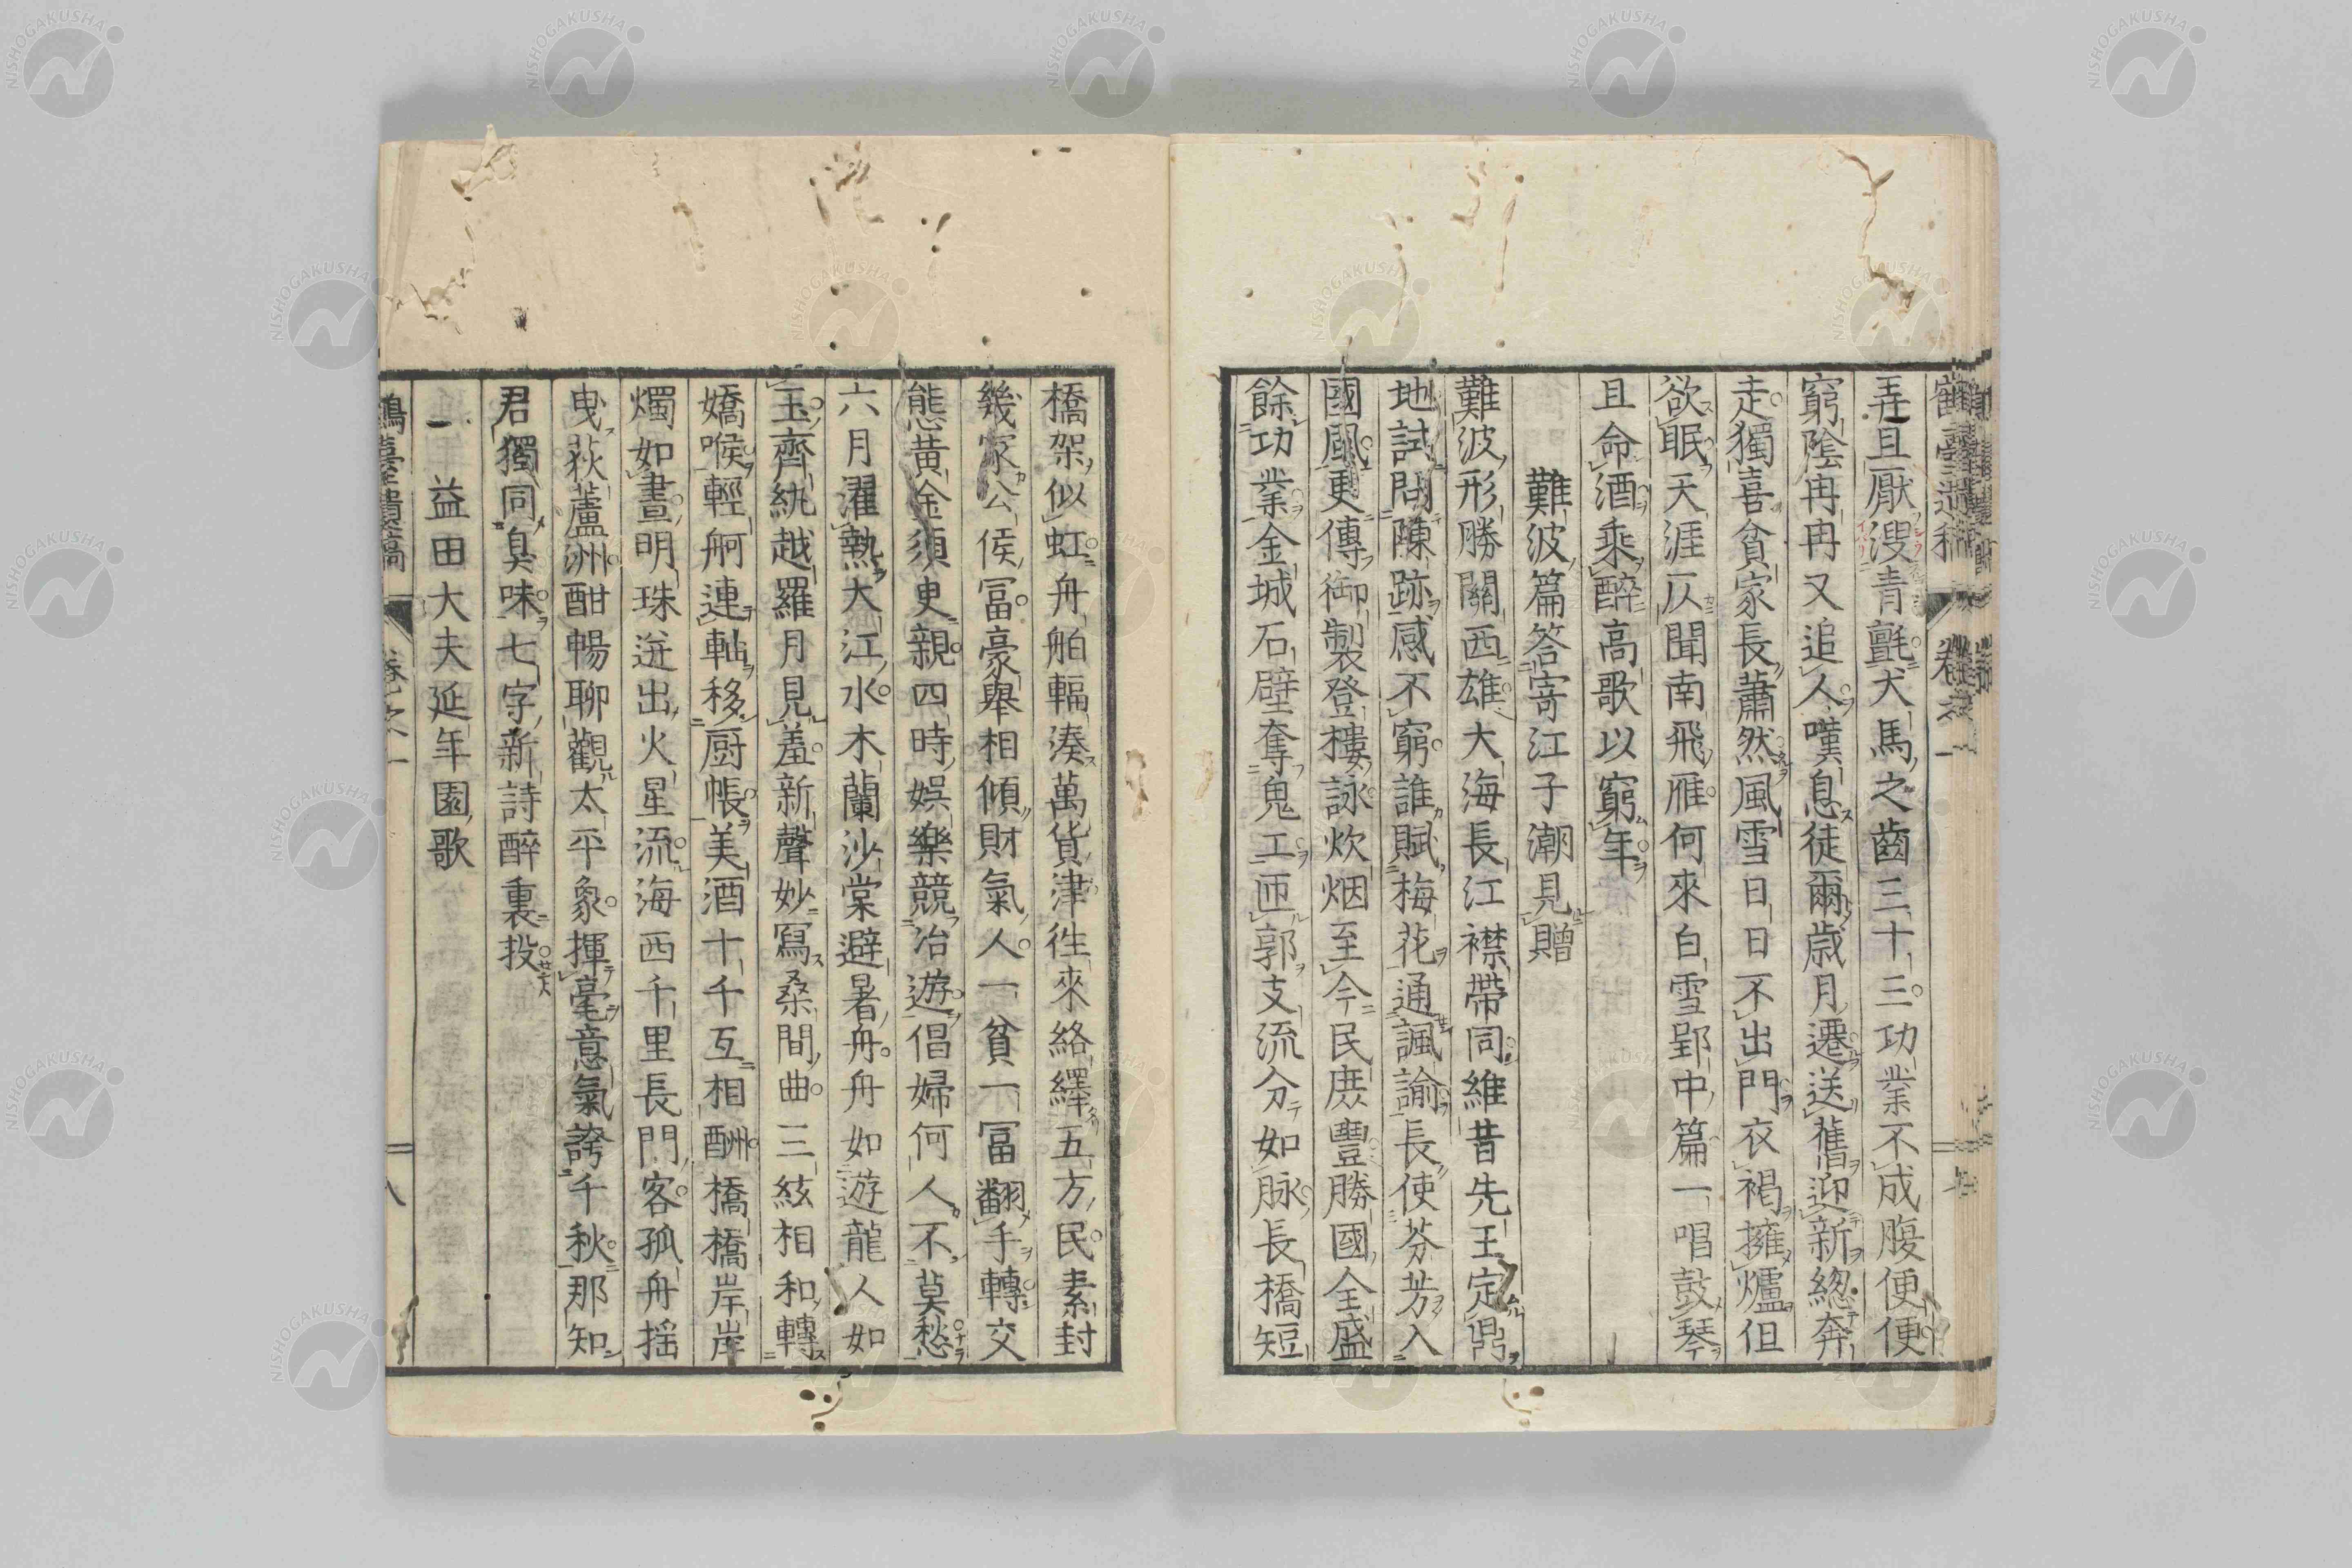 弄且厭溲青氈犬馬之齒三十三功業不成腹便便
窮陰冉冉又追人嘆息徒爾歲月遷送舊迎新緫奔
走獨喜貧家長蕭然風雪日日不出門衣褐擁爐但
欲眠天涯仄聞南飛雁何來白雪郢中篇一唱鼓琴
且命酒乘醉高歌以窮年
難波篇答寄江子潮見贈
難波形勝關西雄大海長江襟帶同維昔先王定
地試問陳跡感不窮誰賦梅花通諷諭長使芬芳入
國風更傳御製登樓詠炊烟至今民庶豐勝國全盛
餘功業金城石壁奪鬼工匝郭支流分如脉長橋短
橋架似虹舟舶輻湊萬貨津徃來絡繹五方民素封
幾家公侯冨豪舉相傾財氣人一貧一冨翻手轉交
態黃金須更親四時娛樂競冶遊倡婦何人不莫愁
六月濯熱大江水木蘭沙棠避暑舟舟如遊龍人如
玉齊紈越羅月見羞新聲妙寫桑間曲三絃相和轉
嬌喉輕舸連軸移厨帳美酒十千互相酬橋橋岸岸
燭如晝明珠迸出火星流海西千里長門客孤舟揺
曳荻蘆洲酣暢聊觀太平象揮毫意氣誇千秋那知
君獨同臭味七字新詩醉裏投
一益田大夫延年園歌
鶴臺遺稿 卷之一 八
NISHOGAKUSHA